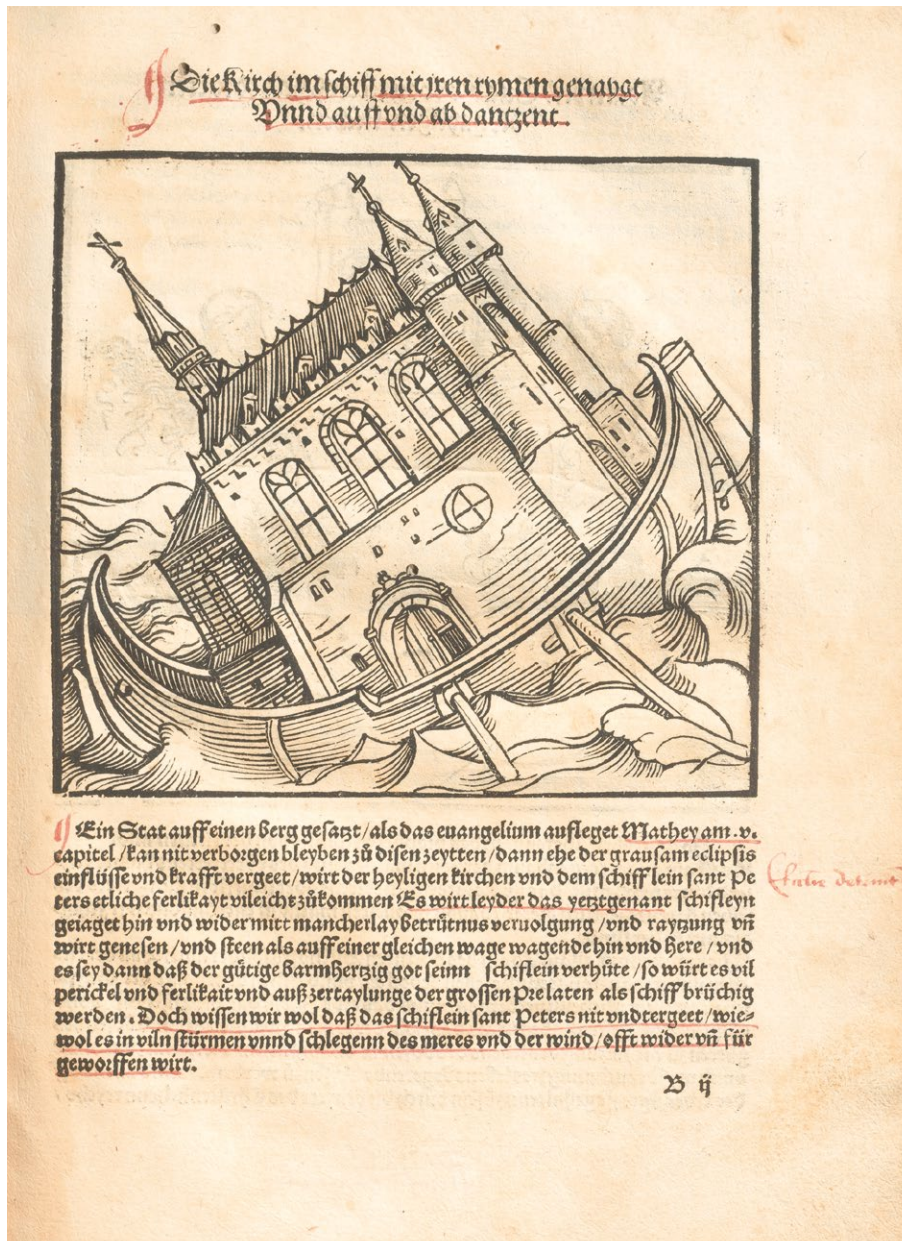 Die Kirch im schiff mit jren rymen genaygt
Vnnd auff vnd ab dantzent.
Ein Stat auff einen berg gesatzt / als das euangelium aufleget Mathey am .v.
capitel / kan nit verborgen bleyben zů disen zeytten / dann ehe der grausam eclipsis
einflüsse vnd krafft vergeet / wirt der heyligen kirchen vnd dem schifflein sant Pe
ters etliche ferlikayt vileicht zůkommen Es wirt leyder das yetztgenant schifleyn
geiaget hin vnd wider mitt mancherlay betrütnus veruolgung / vnd raytzung vñ
wirt genesen / vnd steen als auff einer gleichen wage wagende hin vnd here / vnd
es sey dann daß der gütige barmhertzig got seinn schiflein verhüte / so würt es vil
perickel vnd ferlikait vnd auß zertaylunge der grossen Prelaten als schiffbrüchig
werden. Doch wissen wir wol daß das schiflein sant Peters nit vndtergeet / wie=
wol es in viln stürmen vnnd schlegenn des meres vnd der wind / offt wider vñ für
geworffen wirt.
B ij